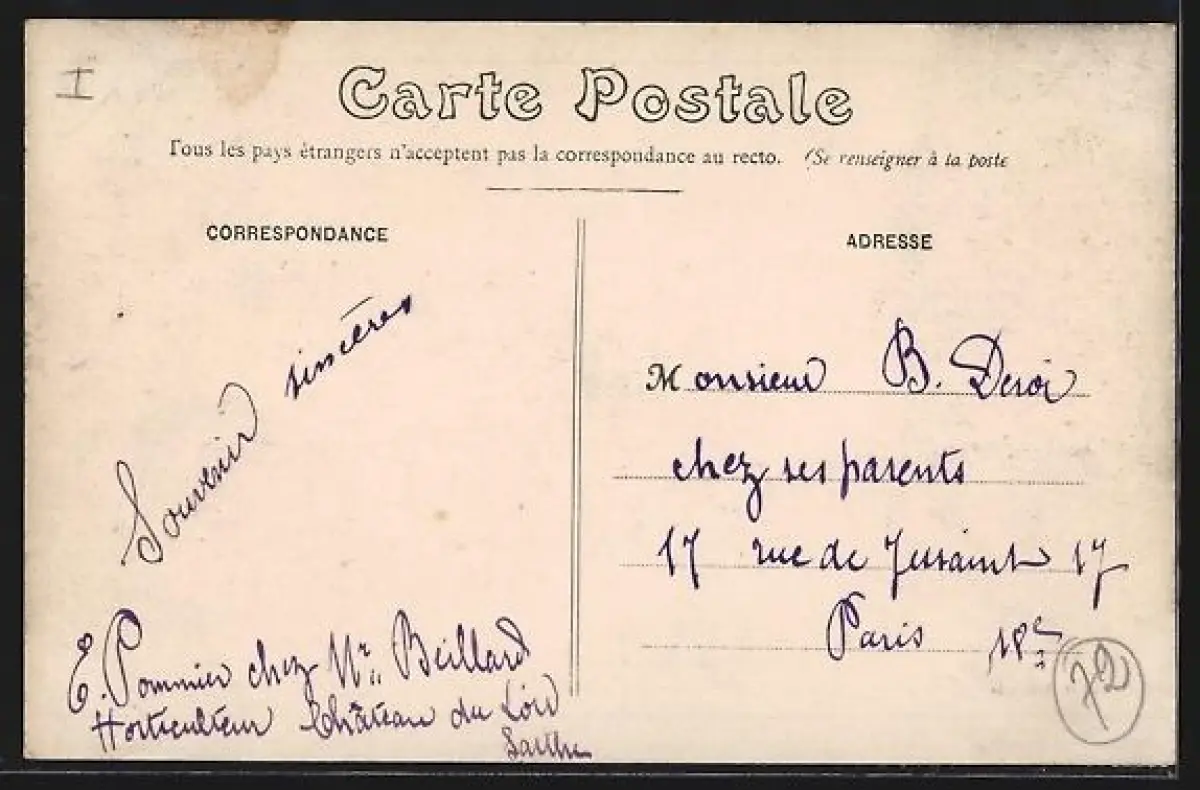 I
Carte Postale
Tous les pays étrangers n'acceptent pas la correspondance au recto. (Se renseigner à la poste
CORRESPONDANCE
Souvenir sincères
E. Pommier chez Mr. Beillard
Horticulteur Château du Loir
Sarthe
ADRESSE
Monsieur B. Deroi
chez ses parents
17 rue de Jessaint 17
Paris 18e
72